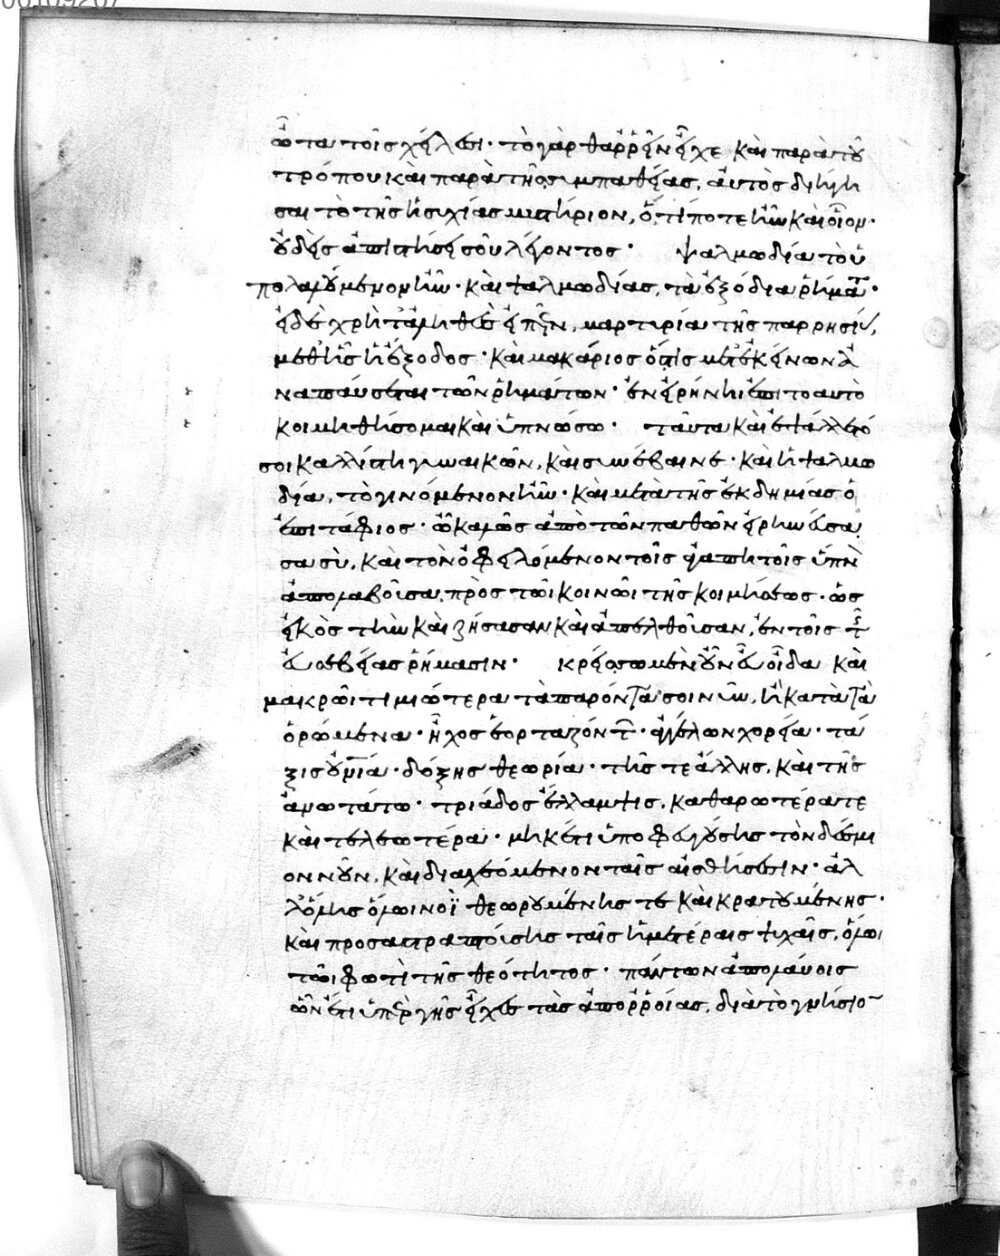 00109207
ὦτα τοῖς χείλεσι· τὸ γὰρ θαρρεῖν εἶχε καὶ παρὰ τοῦ
τρόπου καὶ παρὰ τῆς συμπαθείας, αὐτὸς διήγη
σαι τὸ τῆς ἡσυχίας μυστήριον, ὅ, τί ποτε ἦν καὶ οἷον·
οὐδεὶς ἀπιστήσει σου λέγοντος· ψαλμωδία τὸ ὑ
πολαλούμενον ἦν· καὶ ψαλμωδίας, τὰ ἐξόδια ῥήματα·
εἰ δὲ χρὴ τἀληθὲς εἰπεῖν, μαρτυρία τῆς παρρησίας,
μεθ' ἧς ἡ ἔξοδος· καὶ μακάριος ὅστις μετ' ἐκείνων ἀ
ναπαύσεται τῶν ῥημάτων· ἐν εἰρήνηι ἐπιτοαυτὸ
κοιμηθήσομαι καὶ ὑπνώσω· ταῦτα καὶ ἐψάλλετό
σοι καλλίστη γυναικῶν, καὶ συνέβαινε· καὶ ἡ ψαλμω
δία, τὸ γινόμενον ἦν· καὶ μετὰ τῆς ἐκδημίας ὁ
ἐπιτάφιος· ὦ καλῶς ἀπὸ τῶν παθῶν εἰρηνεύσα
σα σὺ, καὶ τὸν ὀφειλόμενον τοῖς ἀγαπητοῖς ὕπνον
ἀπολαβοῦσα, πρὸς τῶι κοινῶι τῆς κοιμήσεως· ὡς
εἰκὸς τὴν καὶ ζήσασαν καὶ ἀπελθοῦσαν, ἐν τοῖς τῆς
εὐσεβείας ῥήμασιν· κρείσσω μὲν οὖν εὖ οἶδα καὶ
μακρῶι τιμιώτερα τὰ παρόντα σοι νῦν, ἢ κατὰ τὰ
ὁρώμενα· ἦχος ἑορταζόντων· ἀγγέλων χορεία· τά
ξις οὐρανία· δόξης θεωρία· τῆς τε ἄλλης, καὶ τῆς
ἀνωτάτω· τριάδος ἔλλαμψις, καθαρωτέρα τε
καὶ τελεωτέρα· μηκέτι ὑποφευγούσης τὸν δέσμι
ον νοῦν, καὶ διαχεόμενον ταῖς αἰσθήσεσιν· ἀλ
λ' ὅλης ὅλωι νοῒ θεωρουμένης τε καὶ κρατουμένης·
καὶ προσαστραπτούσης ταῖς ἡμετέραις ψυχαῖς, ὅλωι
τῶι φωτὶ τῆς θεότητος· πάντων ἀπολαύοις
ὧν ἔτι ὑπὲρ γῆς εἶχες τὰς ἀπορροίας, διὰ τὸ γνήσιον